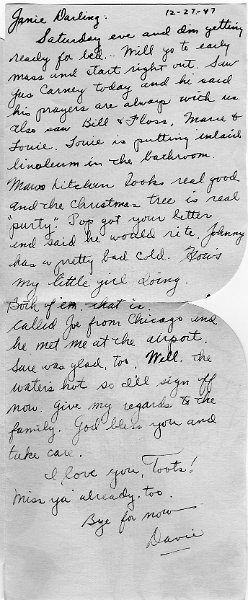 Janie Darling. 12-27-47
Saturday eve and I'm getting
ready for bed. Will go to early
mass and start right out. Saw
Gus Carney today and he said
his prayers are always with us
also saw Bill & Floss, Marie &
Louie. Louie is putting inlaid
linoleum in the bathroom.
Maws kitchen looks real good
and the Christmas tree is real
"purty". Pop got your letter
and said he would rite. Johnny
has a pretty bad cold. Hows
my little girl doing.
Both of em, that is.
called Joe from Chicago and
he met me at the airport.
Sure was glad, too. Well, the
waters hot so I'll sign off
now. Give my regards to the
family. God bless you and
take care.
I love you, Toots!
Miss ya already, too.
Bye for now
Davie